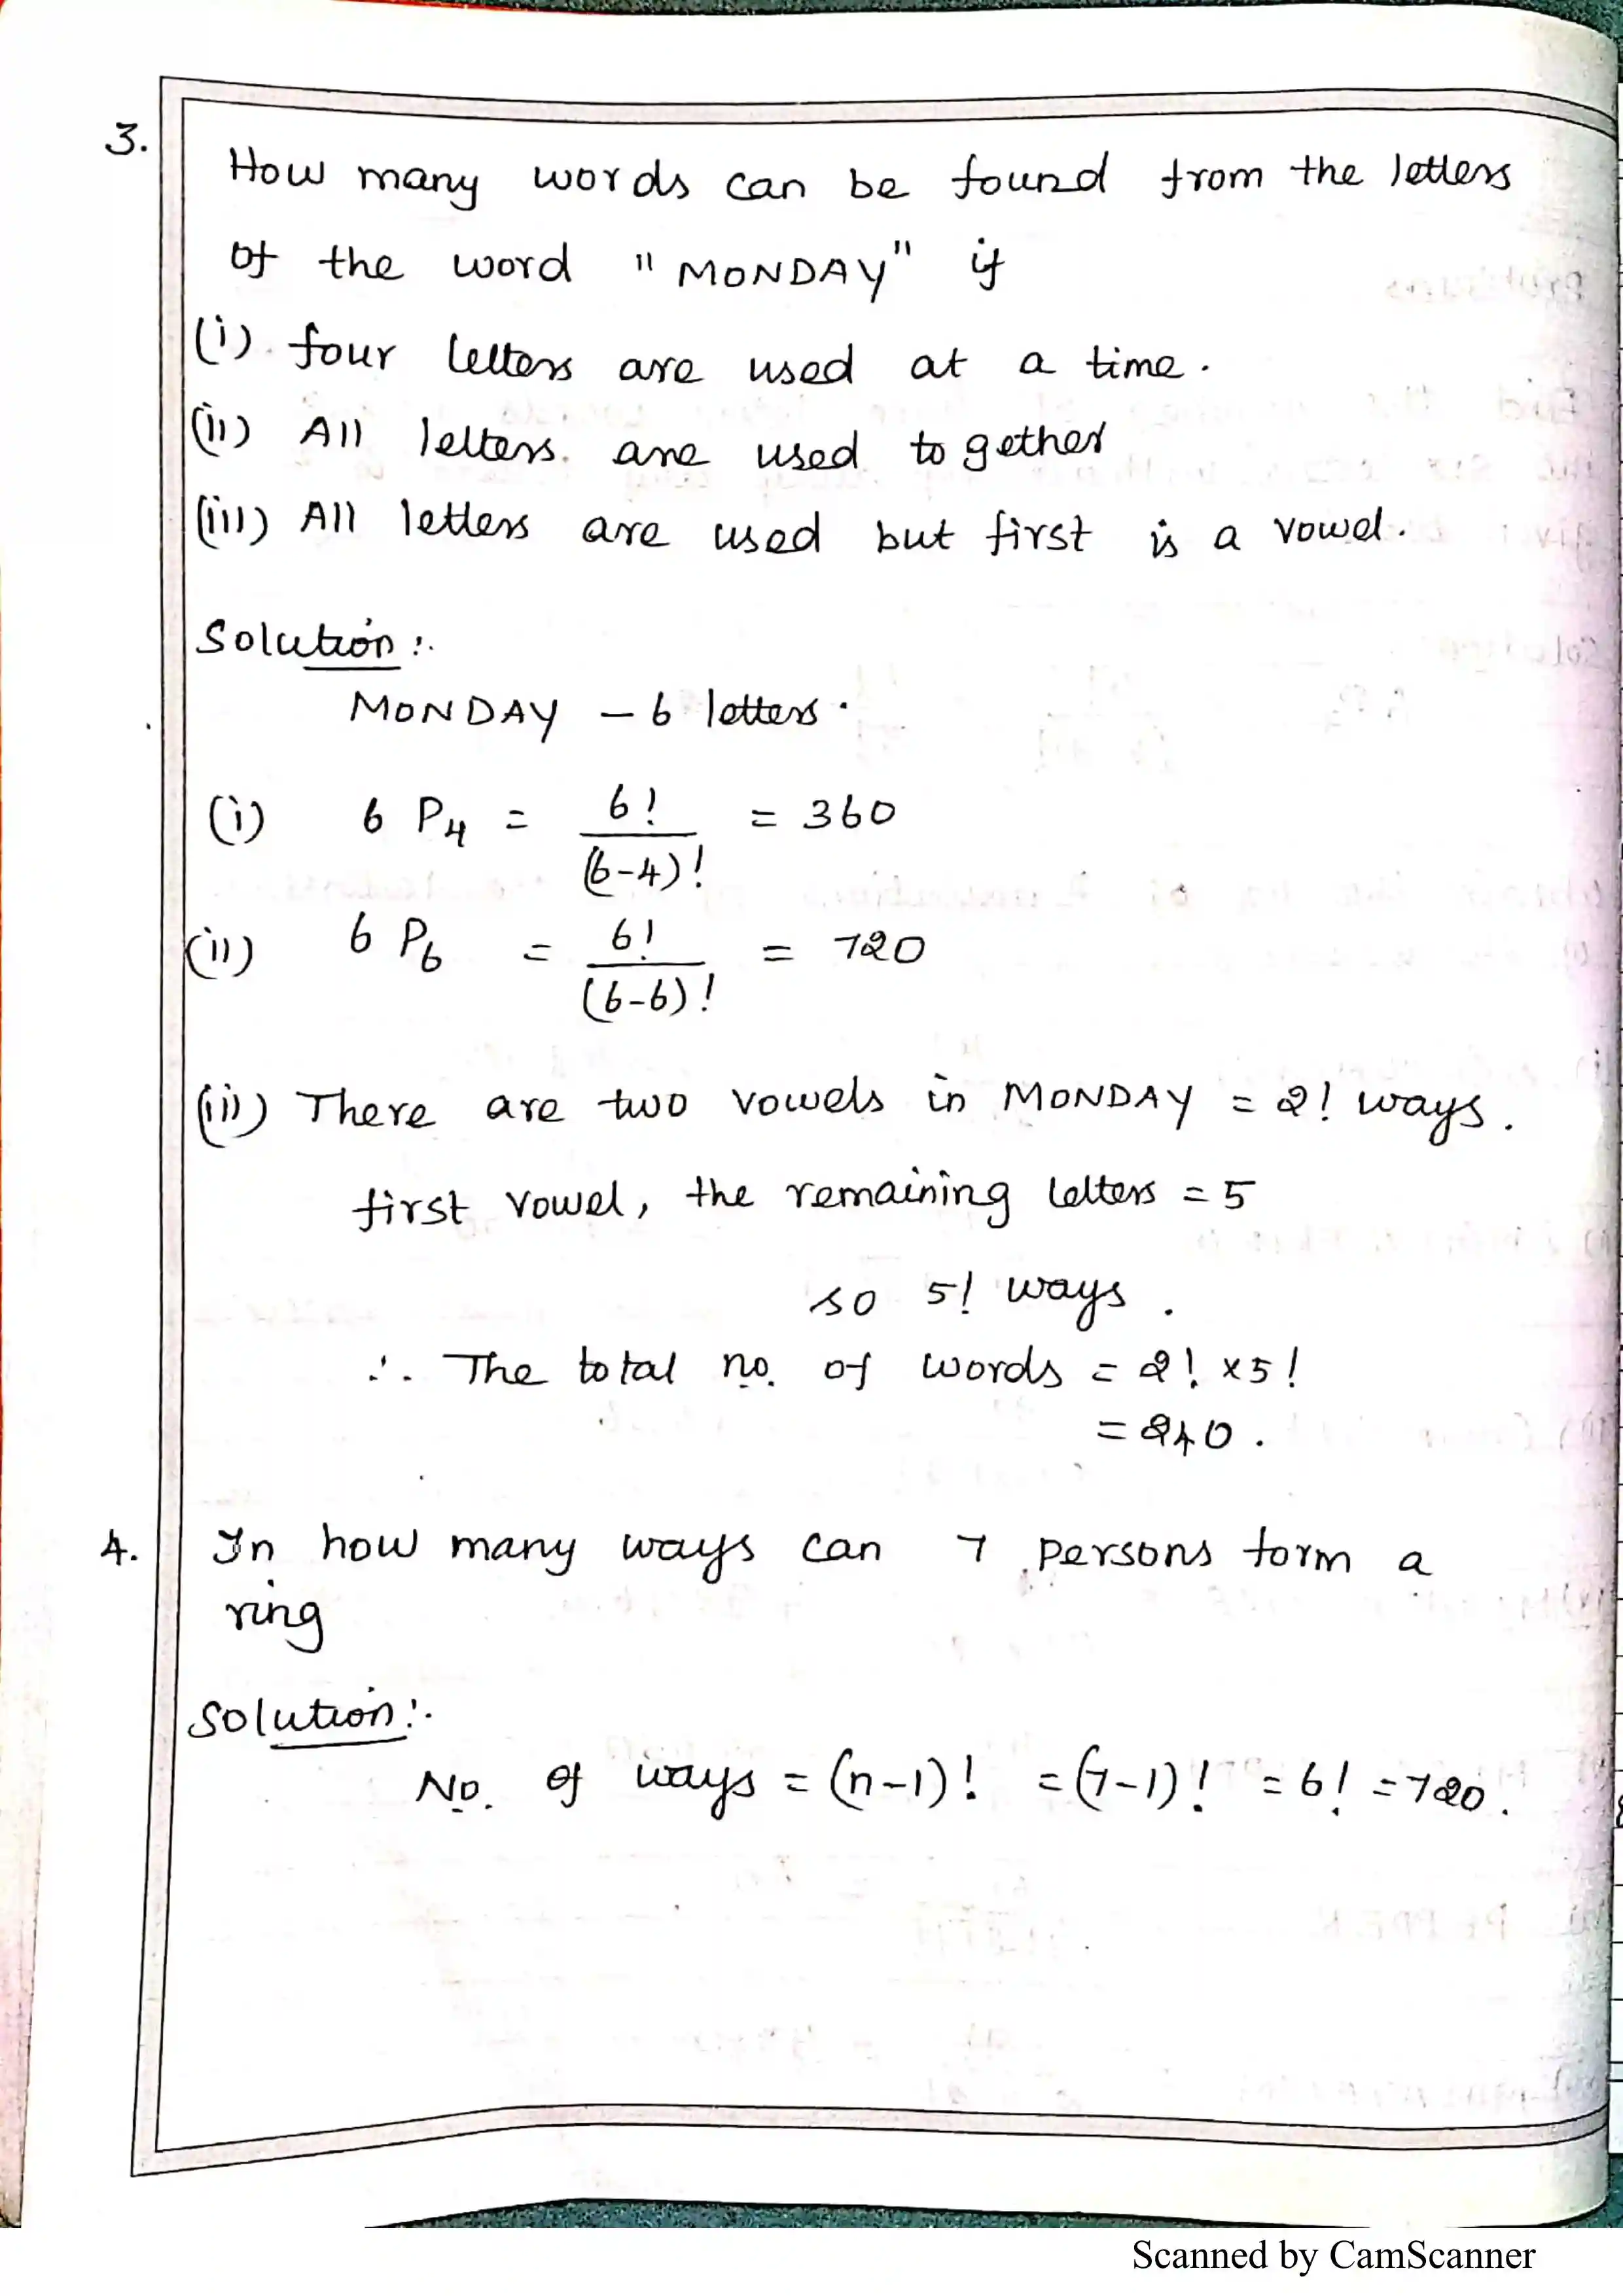 3.
How many words can be found from the letters
of the word "MONDAY" if
(i) four letters are used at a time.
(ii) All letters are used together
(iii) All letters are used but first is a vowel.
Solution:
MONDAY - 6 letters.
(i) 6 P4 = 6! / (6-4)! = 360
(ii) 6 P6 = 6! / (6-6)! = 720
(iii) There are two vowels in MONDAY = 2! ways.
first vowel, the remaining letters = 5
so 5! ways.
∴ The total no. of words = 2! × 5!
= 240.
4. In how many ways can 7 persons form a
ring
Solution:
No. of ways = (n-1)! = (7-1)! = 6! = 720.
Scanned by CamScanner